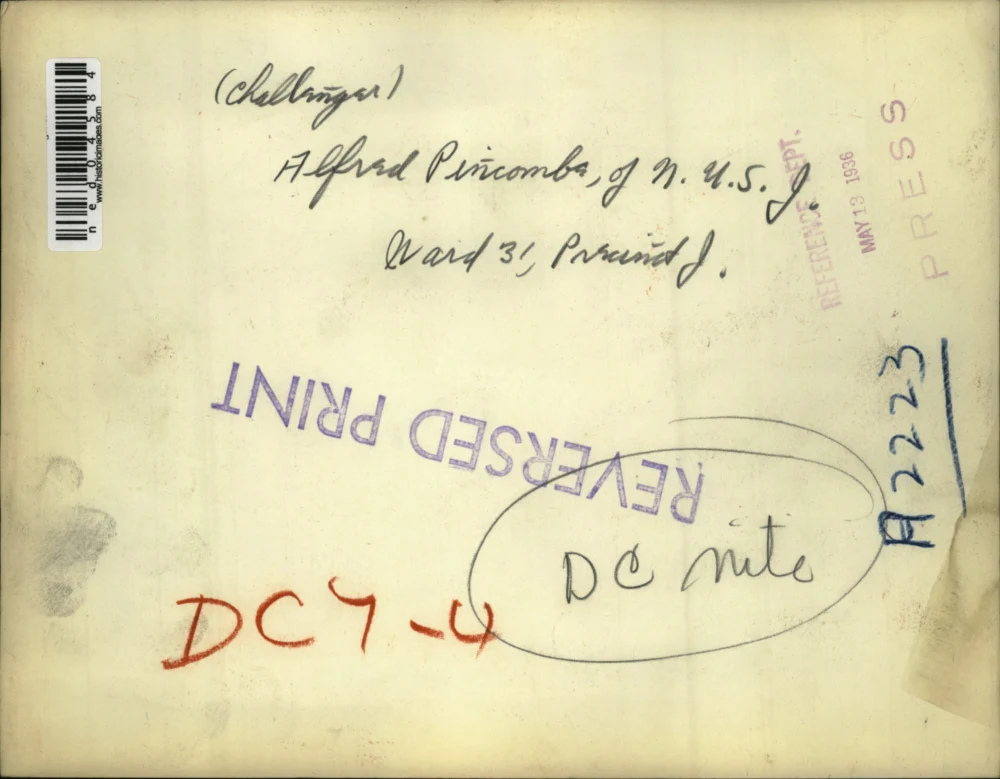 (Challenger)
Alfred Pincombe, of N. U. S. J.
Ward 31, Precinct J.
REFERENCE DEPT.
MAY 13 1936
PRESS
A2223
REVERSED PRINT
DC nite
DC 7-4
ned04584
www.historicimages.com